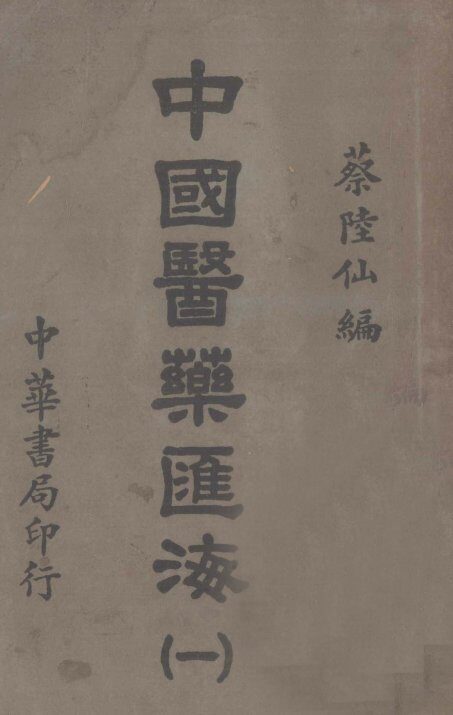 蔡陸仙編
中國醫藥匯海(一)
中華書局印行